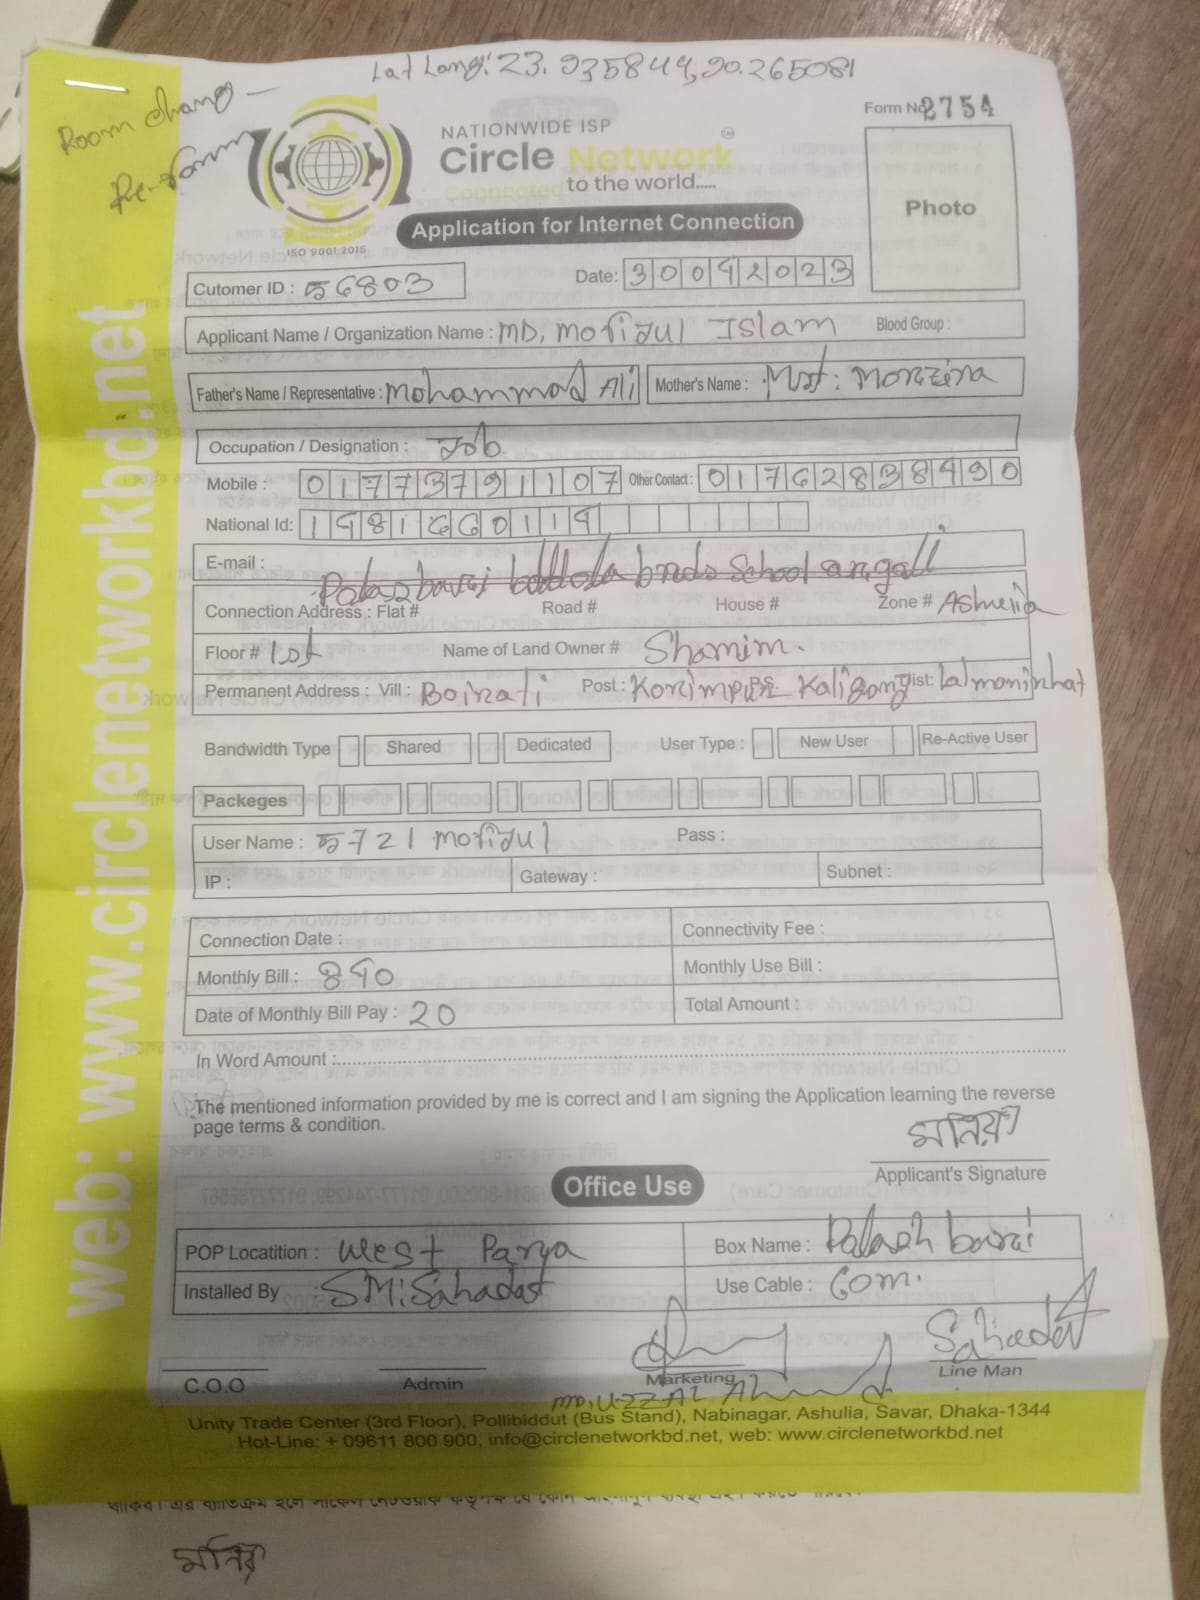 Lat Long: 23.935844,90.265081
Room chang
Re-form
Form No 2754
NATIONWIDE ISP
Circle Network
Connected to the world.....
ISO 9001:2015
Application for Internet Connection
Photo
Cutomer ID : 56803
Date: 30042023
Applicant Name / Organization Name : MD, Mofijul Islam Blood Group :
Father's Name / Representative : Mohammad Ali Mother's Name : Mst: Morzina
Occupation / Designation : Job
Mobile : 01773791107 Other Contact : 01762838490
National Id:
E-mail :
Connection Address : Flat # Road # House # Zone # Ashulia
Floor # 1st Name of Land Owner # Shamim.
Permanent Address : Vill : Boirati Post : Korimpur P.S: Kaligong Dist: Lalmonirhat
Bandwidth Type Shared Dedicated User Type : New User Re-Active User
Packeges
User Name : 5721 mofijul Pass :
IP : Gateway : Subnet :
Connection Date : Connectivity Fee :
Monthly Bill : 840 Monthly Use Bill :
Date of Monthly Bill Pay : 20 Total Amount :
In Word Amount :
The mentioned information provided by me is correct and I am signing the Application learning the reverse
page terms & condition.
Applicant's Signature
Office Use
POP Locatition : West Parya Box Name : Palash barai
Installed By : S.M: Sahadat Use Cable : 60m.
Sahadat
C.O.O Admin Marketing Line Man
MD, UZZAL Ahmed
Unity Trade Center (3rd Floor), Pollibiddut (Bus Stand), Nabinagar, Ashulia, Savar, Dhaka-1344
Hot-Line: + 09611 800 900, info@circlenetworkbd.net, web: www.circlenetworkbd.net
web: www.circlenetworkbd.net